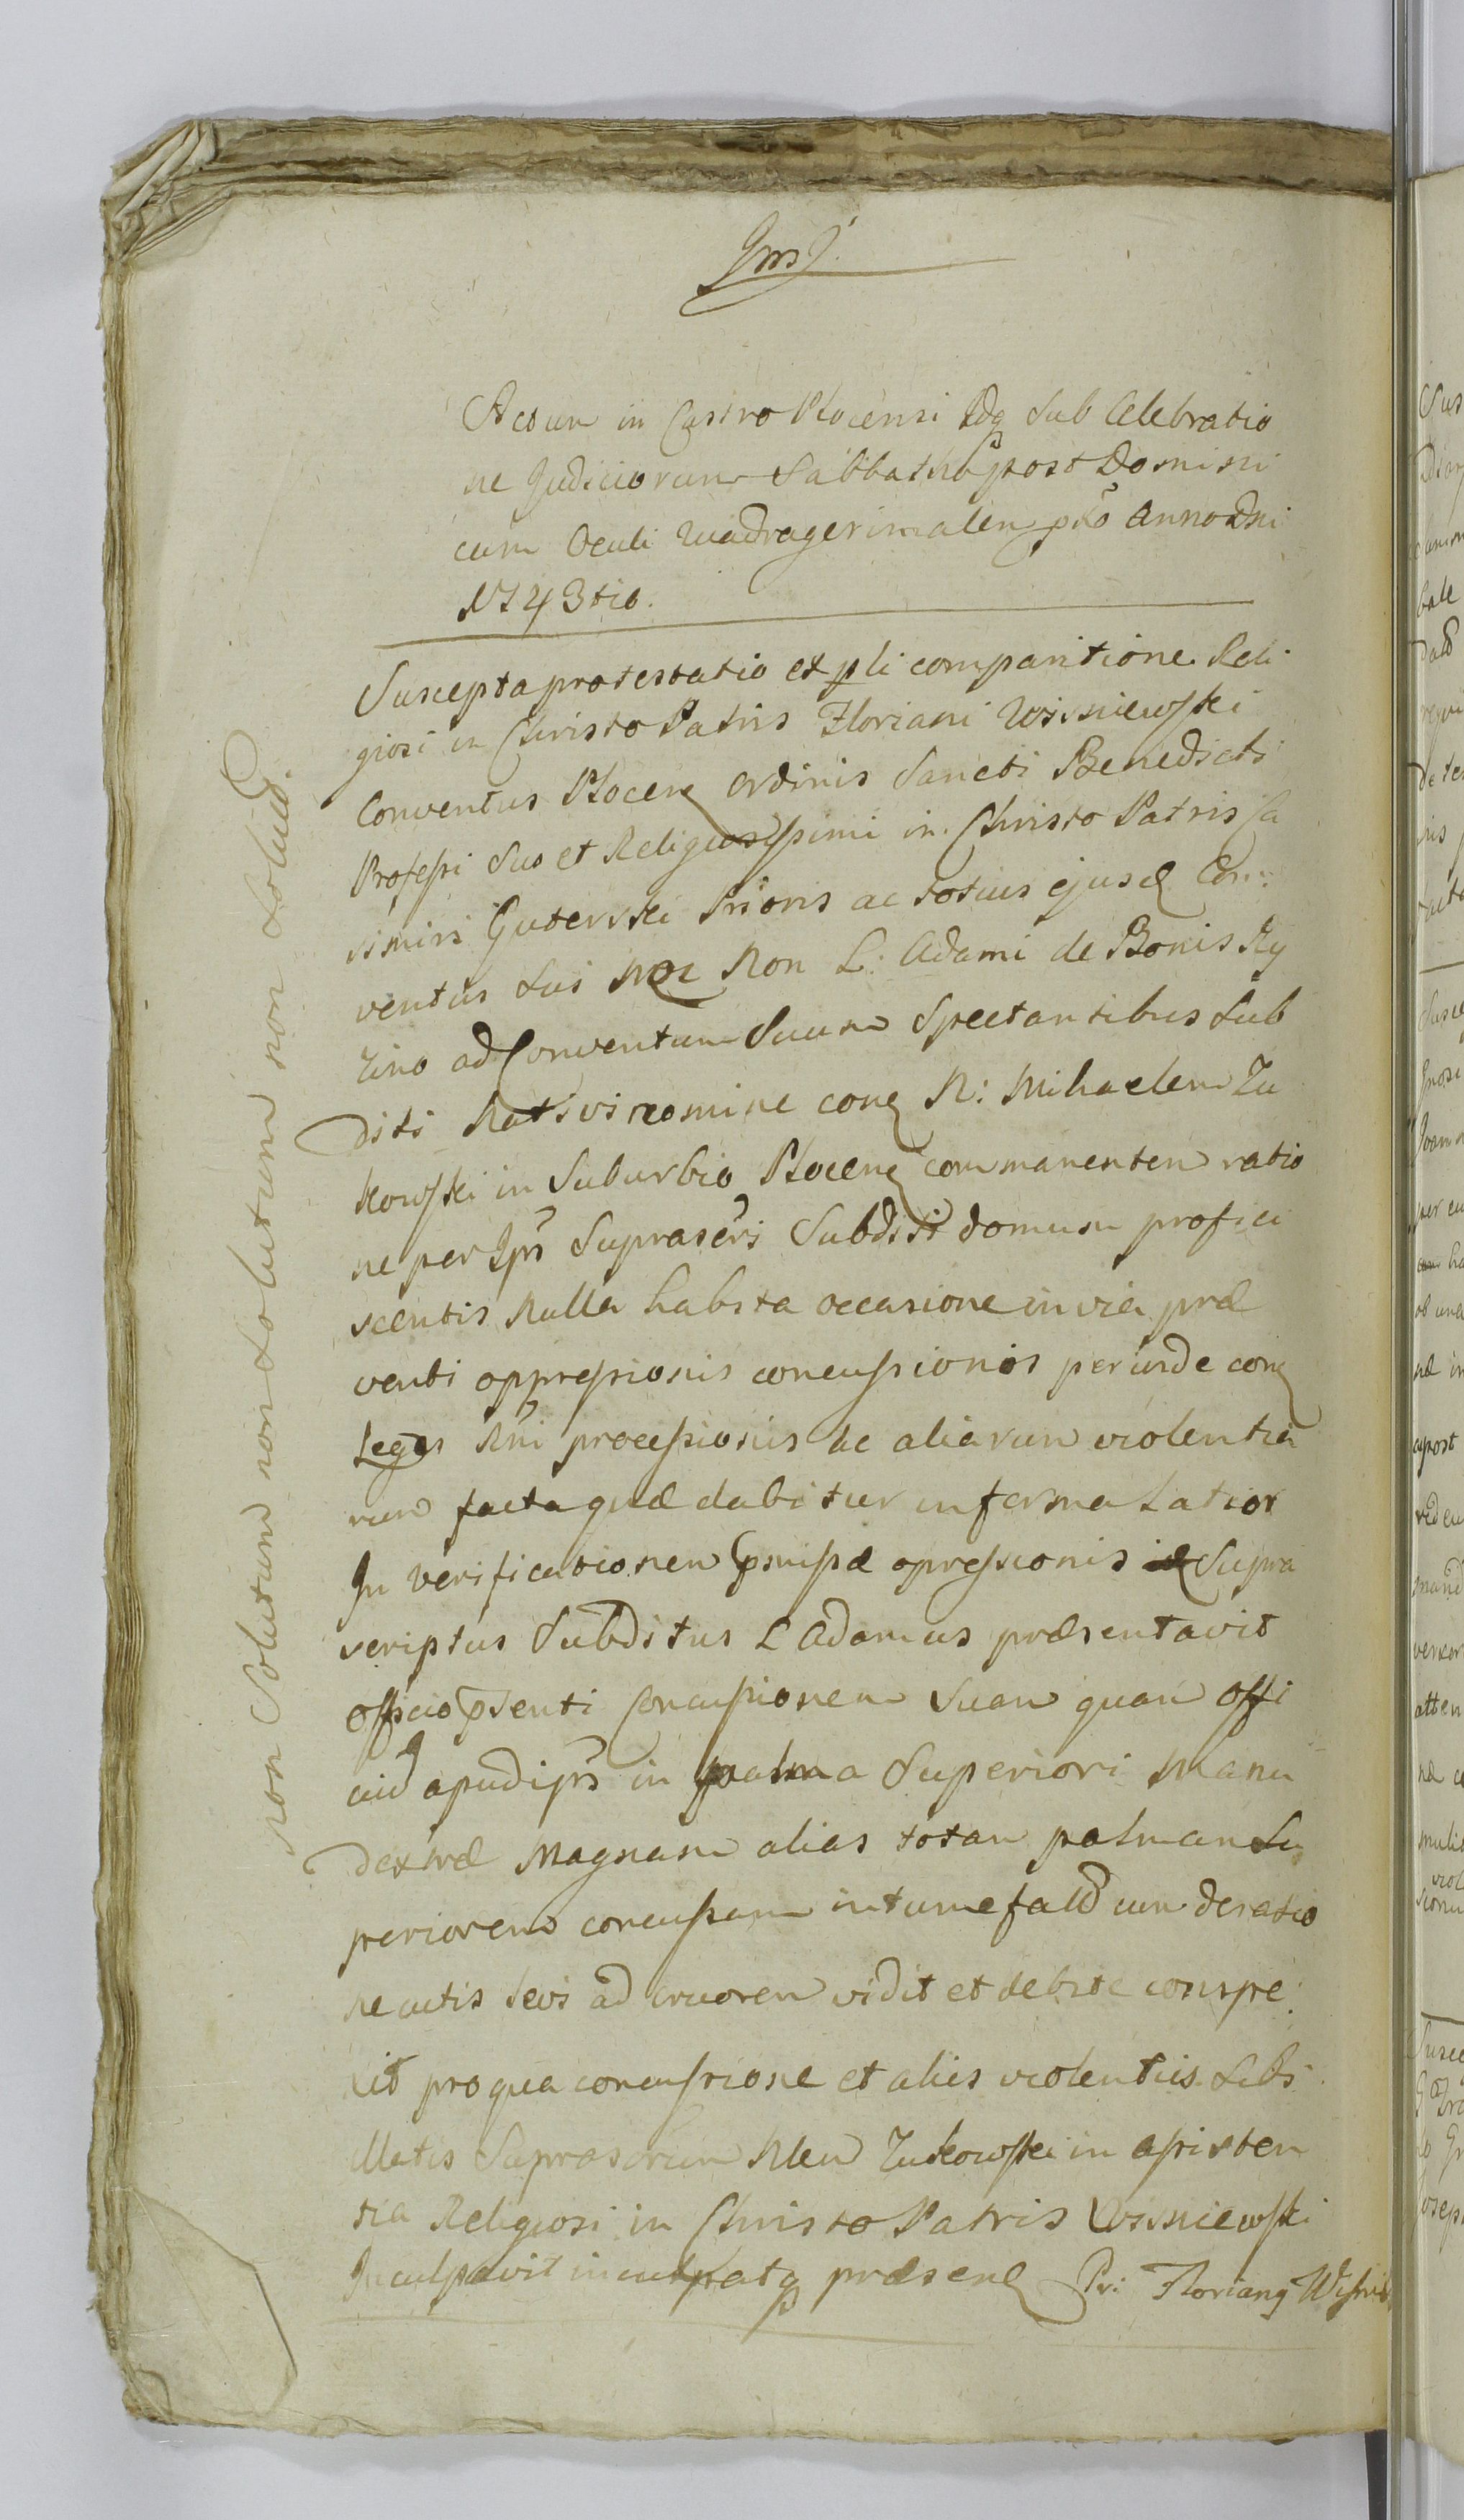 Actum in Castro Plocensi Idq sub Celebratio
ne Judiciorum Sabbatho post Domini
cam Oculi Quadragesimalem pto Anno Dni
1743tio.
Suscepta protestatio ex pli comparitione Reli
giosi in Christo Patris Floriani Wisniewski
Conventus Plocen Ordinis Sancti Benedicti
Professi suo et Religiosissimi in Christo Patris Ca
simiri Guterski Prioris ac totius ejusd Con
ventus sui Nec Non L: Adami de Bonis Ry
zino ad Conventum Suum Spectantibus Sub
diti Nativi nomine con N: Mihaelem Zu
kowski in Suburbio Plocen commanentem ratio
ne per Ips Suprascri Subditi domum profici
scentis Nulla habita occasione in via præ
venti oppressionis concussionis perinde con
Leges Rni processionis ac aliarum violentia
rum facta quæ dabitur in forma Latior
In verificationem præmissæ opressionis Supra
scriptus Subditus L Adamus præsentavit
Officio psenti Concussionem Suam quam Offi
cium apud ips in palma Superiori manu
dextræ Magnam alias totam palmam Su
periorem concussam intumefactd cum deratio
ne cutis sevi ad cruorem vidit et debite conspe
xit pro qua concussione et aliis violentiis Sibi
illatis Suprascrum Nlem Zukowski in assisten
tia Religiosi in Christo Patris Wisniewski
Inculpavit inculpatq præsen Pr: Florianq
non Solutum non Solutum non Solutd.